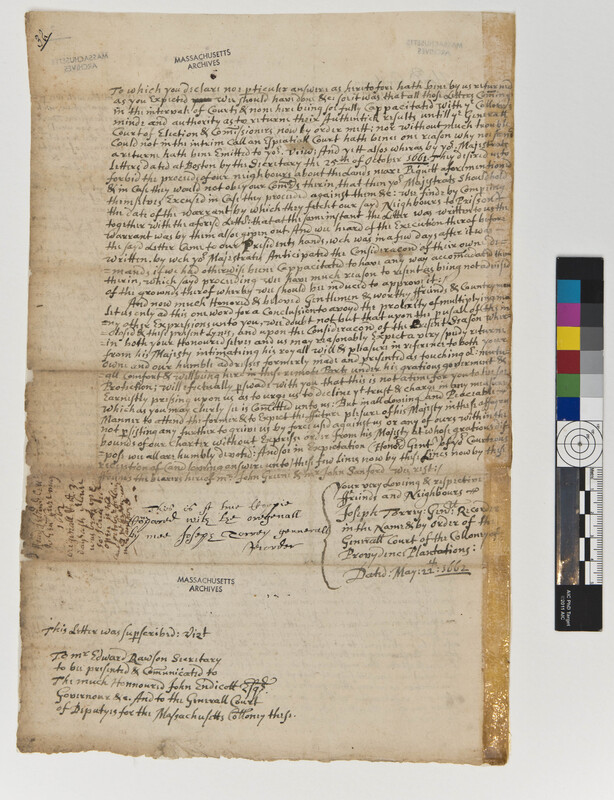 38
MASSACHUSETTS
ARCHIVES
To which you declare noe pticuler answere as heretofore hath bine by us returned
as you Expected wee should have don: &c: soe it was that all those Letters Coming
in the intervals of Courts & none here being soe fully Cappacitated with ye Collonys
minde and authority as to returne their Authentick results untill ye Generall
Court of Election & Comissioners now by order mett; nor without much trouble
Could not in the intrim Call an Espetiall Court hath bine one reason why noe sooner
a returne hath bine Emitted to yor. View: And yett also wheras by yor Majestrats
Letters dated at Boston by the Secretary the 25th of October 1661. They desired us to
forbid the proceed of our neighbours about the lands neare Paquatt aforementioned
& in Case they would not obey our Comands therein, that then yor Majestrats Should hold
themselves Excused in Case they proceeded against them &c: wee finde by Compairing
the date of the warrant by which they fetcht our said Neighbours to Prison
together with the aforesd Letter that at the same instant the Letter was written to us the
warrant was by them also given out. And wee heard of the Execution therof before
the said Letter Came to our Presidents hands, wch was in a few days after it was
written, by wch yor Majestrats Anticipated the Consideracon of their owne de=
=mand; if wee had otherwise bine Cappacitated to have any way accomodated them
therin, which said proceeding wee have much reason to resent as being not advised
of the grounds therof wherby wee should bee induced to approve it:/
And now much Honored & beloved Gentlemen & worthy ffriends & Countrymen
Let us only ad this one word for a Conclusion to avoyd the prolixity of multiplying many
any other Expressions unto you, wee doubt not but that upon the pusall of the in=
closed & these present Lynes, and upon the Consideracon of the Present Season where
in both your Honoured selves and us may reasonably Expect a very speedy returne
from his Majesty intimating his royall will & pleasure in reference to both your
owne and our humble addresses formerly made and presented as touching or mutu=
all Comfort & well being here in these remote Parts under his gratious government &
Protection; will efectually pswade with you that this is not a time for you to bee soe
Earnestly pressing upon us as to urge us to decline yt trust & charge in any measure
Which as you may clearly see is Comitted unto us: But in all Loving and Peaceable
Manner to attend the former & to Expect the further plesure of his Majesty in these affaires
not psisting any further to grieve us by force used against us or any of ours within the
bounds of our Charter without Express order from his Majesty to whose gratious dis=
=pose wee all are humbly devoted: And soe in Expectation (Honord Gent) of yor Courteous
reception of Candid Loving answer unto these few Lines now by these Lines now by these
the bearers hereof mr John Greene & mr John Sanford wee rest:/
Your very Loving & respective
ffriends and Neighbours
Joseph Torrey: Genll. Recorder
in the Name & by Order of the
Generall Court of the Collony of
Providence Plantations:
Dated: May: 22th: 1662
This is a true Coppie
Compared with the oregenall
by mee Joseph Torrey generall
Recorder
MASSACHUSETTS
ARCHIVES
This Letter was supscribed: Vizt
To mr Edward Rawson Secretary
to bee presented & Comunicated to
The much Honnoured John Endicott Esqr.
Governour &c. And to the Generall Court
of Deputyes for the Masachusetts Collony these.